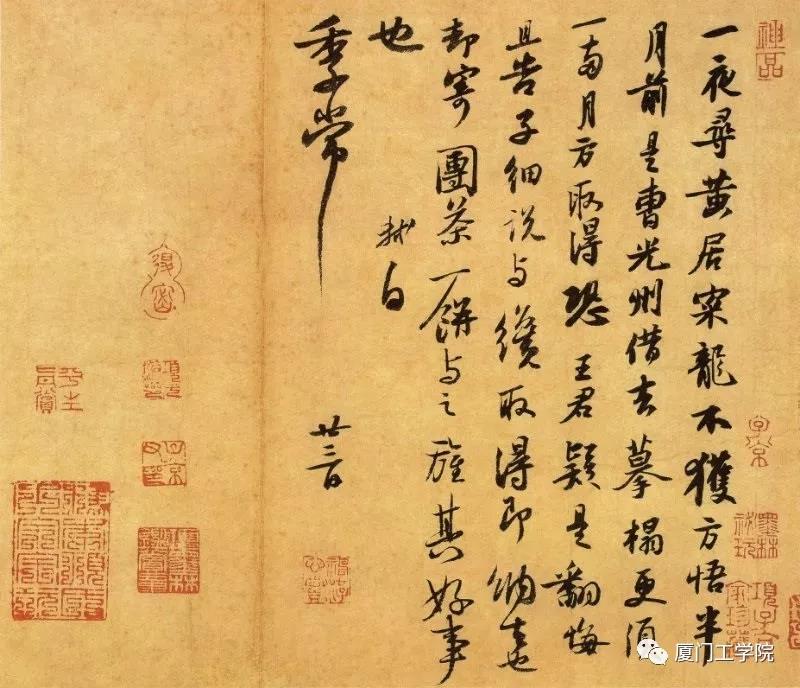 一夜尋黄居寀龍不獲方悟半
月前是曹光州借去摹搨更須
一兩月方取得恐王君疑是翻悔
且告子細説与纔取得即納去也
却寄團茶一餅与之旌其好事
也
軾白
季常
廿三日
厦门工学院